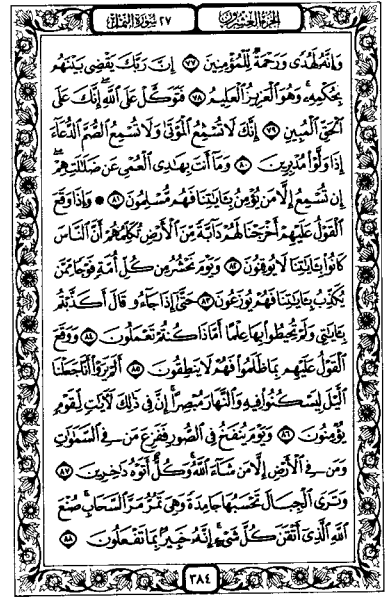 الجزء العشرون
٢٧ سورة النمل
وَإِنَّهُۥ لَهُدًى وَرَحْمَةٌ لِّلْمُؤْمِنِينَ ﴿٧٧﴾ إِنَّ رَبَّكَ يَقْضِى بَيْنَهُم
بِحُكْمِهِۦ وَهُوَ ٱلْعَزِيزُ ٱلْعَلِيمُ ﴿٧٨﴾ فَتَوَكَّلْ عَلَى ٱللَّهِ إِنَّكَ عَلَى
ٱلْحَقِّ ٱلْمُبِينِ ﴿٧٩﴾ إِنَّكَ لَا تُسْمِعُ ٱلْمَوْتَىٰ وَلَا تُسْمِعُ ٱلصُّمَّ ٱلدُّعَآءَ
إِذَا وَلَّوْا۟ مُدْبِرِينَ ﴿٨٠﴾ وَمَآ أَنتَ بِهَـٰدِى ٱلْعُمْىِ عَن ضَلَـٰلَتِهِمْ
إِن تُسْمِعُ إِلَّا مَن يُؤْمِنُ بِـَٔايَـٰتِنَا فَهُم مُّسْلِمُونَ ﴿٨١﴾ ۞ وَإِذَا وَقَعَ
ٱلْقَوْلُ عَلَيْهِمْ أَخْرَجْنَا لَهُمْ دَآبَّةً مِّنَ ٱلْأَرْضِ تُكَلِّمُهُمْ أَنَّ ٱلنَّاسَ
كَانُوا۟ بِـَٔايَـٰتِنَا لَا يُوقِنُونَ ﴿٨٢﴾ وَيَوْمَ نَحْشُرُ مِن كُلِّ أُمَّةٍ فَوْجًا مِّمَّن
يُكَذِّبُ بِـَٔايَـٰتِنَا فَهُمْ يُوزَعُونَ ﴿٨٣﴾ حَتَّىٰٓ إِذَا جَآءُو قَالَ أَكَذَّبْتُم
بِـَٔايَـٰتِى وَلَمْ تُحِيطُوا۟ بِهَا عِلْمًا أَمَّاذَا كُنتُمْ تَعْمَلُونَ ﴿٨٤﴾ وَوَقَعَ
ٱلْقَوْلُ عَلَيْهِم بِمَا ظَلَمُوا۟ فَهُمْ لَا يَنطِقُونَ ﴿٨٥﴾ أَلَمْ يَرَوْا۟ أَنَّا جَعَلْنَا
ٱلَّيْلَ لِيَسْكُنُوا۟ فِيهِ وَٱلنَّهَارَ مُبْصِرًا إِنَّ فِى ذَٰلِكَ لَـَٔايَـٰتٍ لِّقَوْمٍ
يُؤْمِنُونَ ﴿٨٦﴾ وَيَوْمَ يُنفَخُ فِى ٱلصُّورِ فَفَزِعَ مَن فِى ٱلسَّمَـٰوَٰتِ
وَمَن فِى ٱلْأَرْضِ إِلَّا مَن شَآءَ ٱللَّهُ وَكُلٌّ أَتَوْهُ دَٰخِرِينَ ﴿٨٧﴾
وَتَرَى ٱلْجِبَالَ تَحْسَبُهَا جَامِدَةً وَهِىَ تَمُرُّ مَرَّ ٱلسَّحَابِ صُنْعَ
ٱللَّهِ ٱلَّذِىٓ أَتْقَنَ كُلَّ شَىْءٍ إِنَّهُۥ خَبِيرٌۢ بِمَا تَفْعَلُونَ ﴿٨٨﴾
٣٨٤